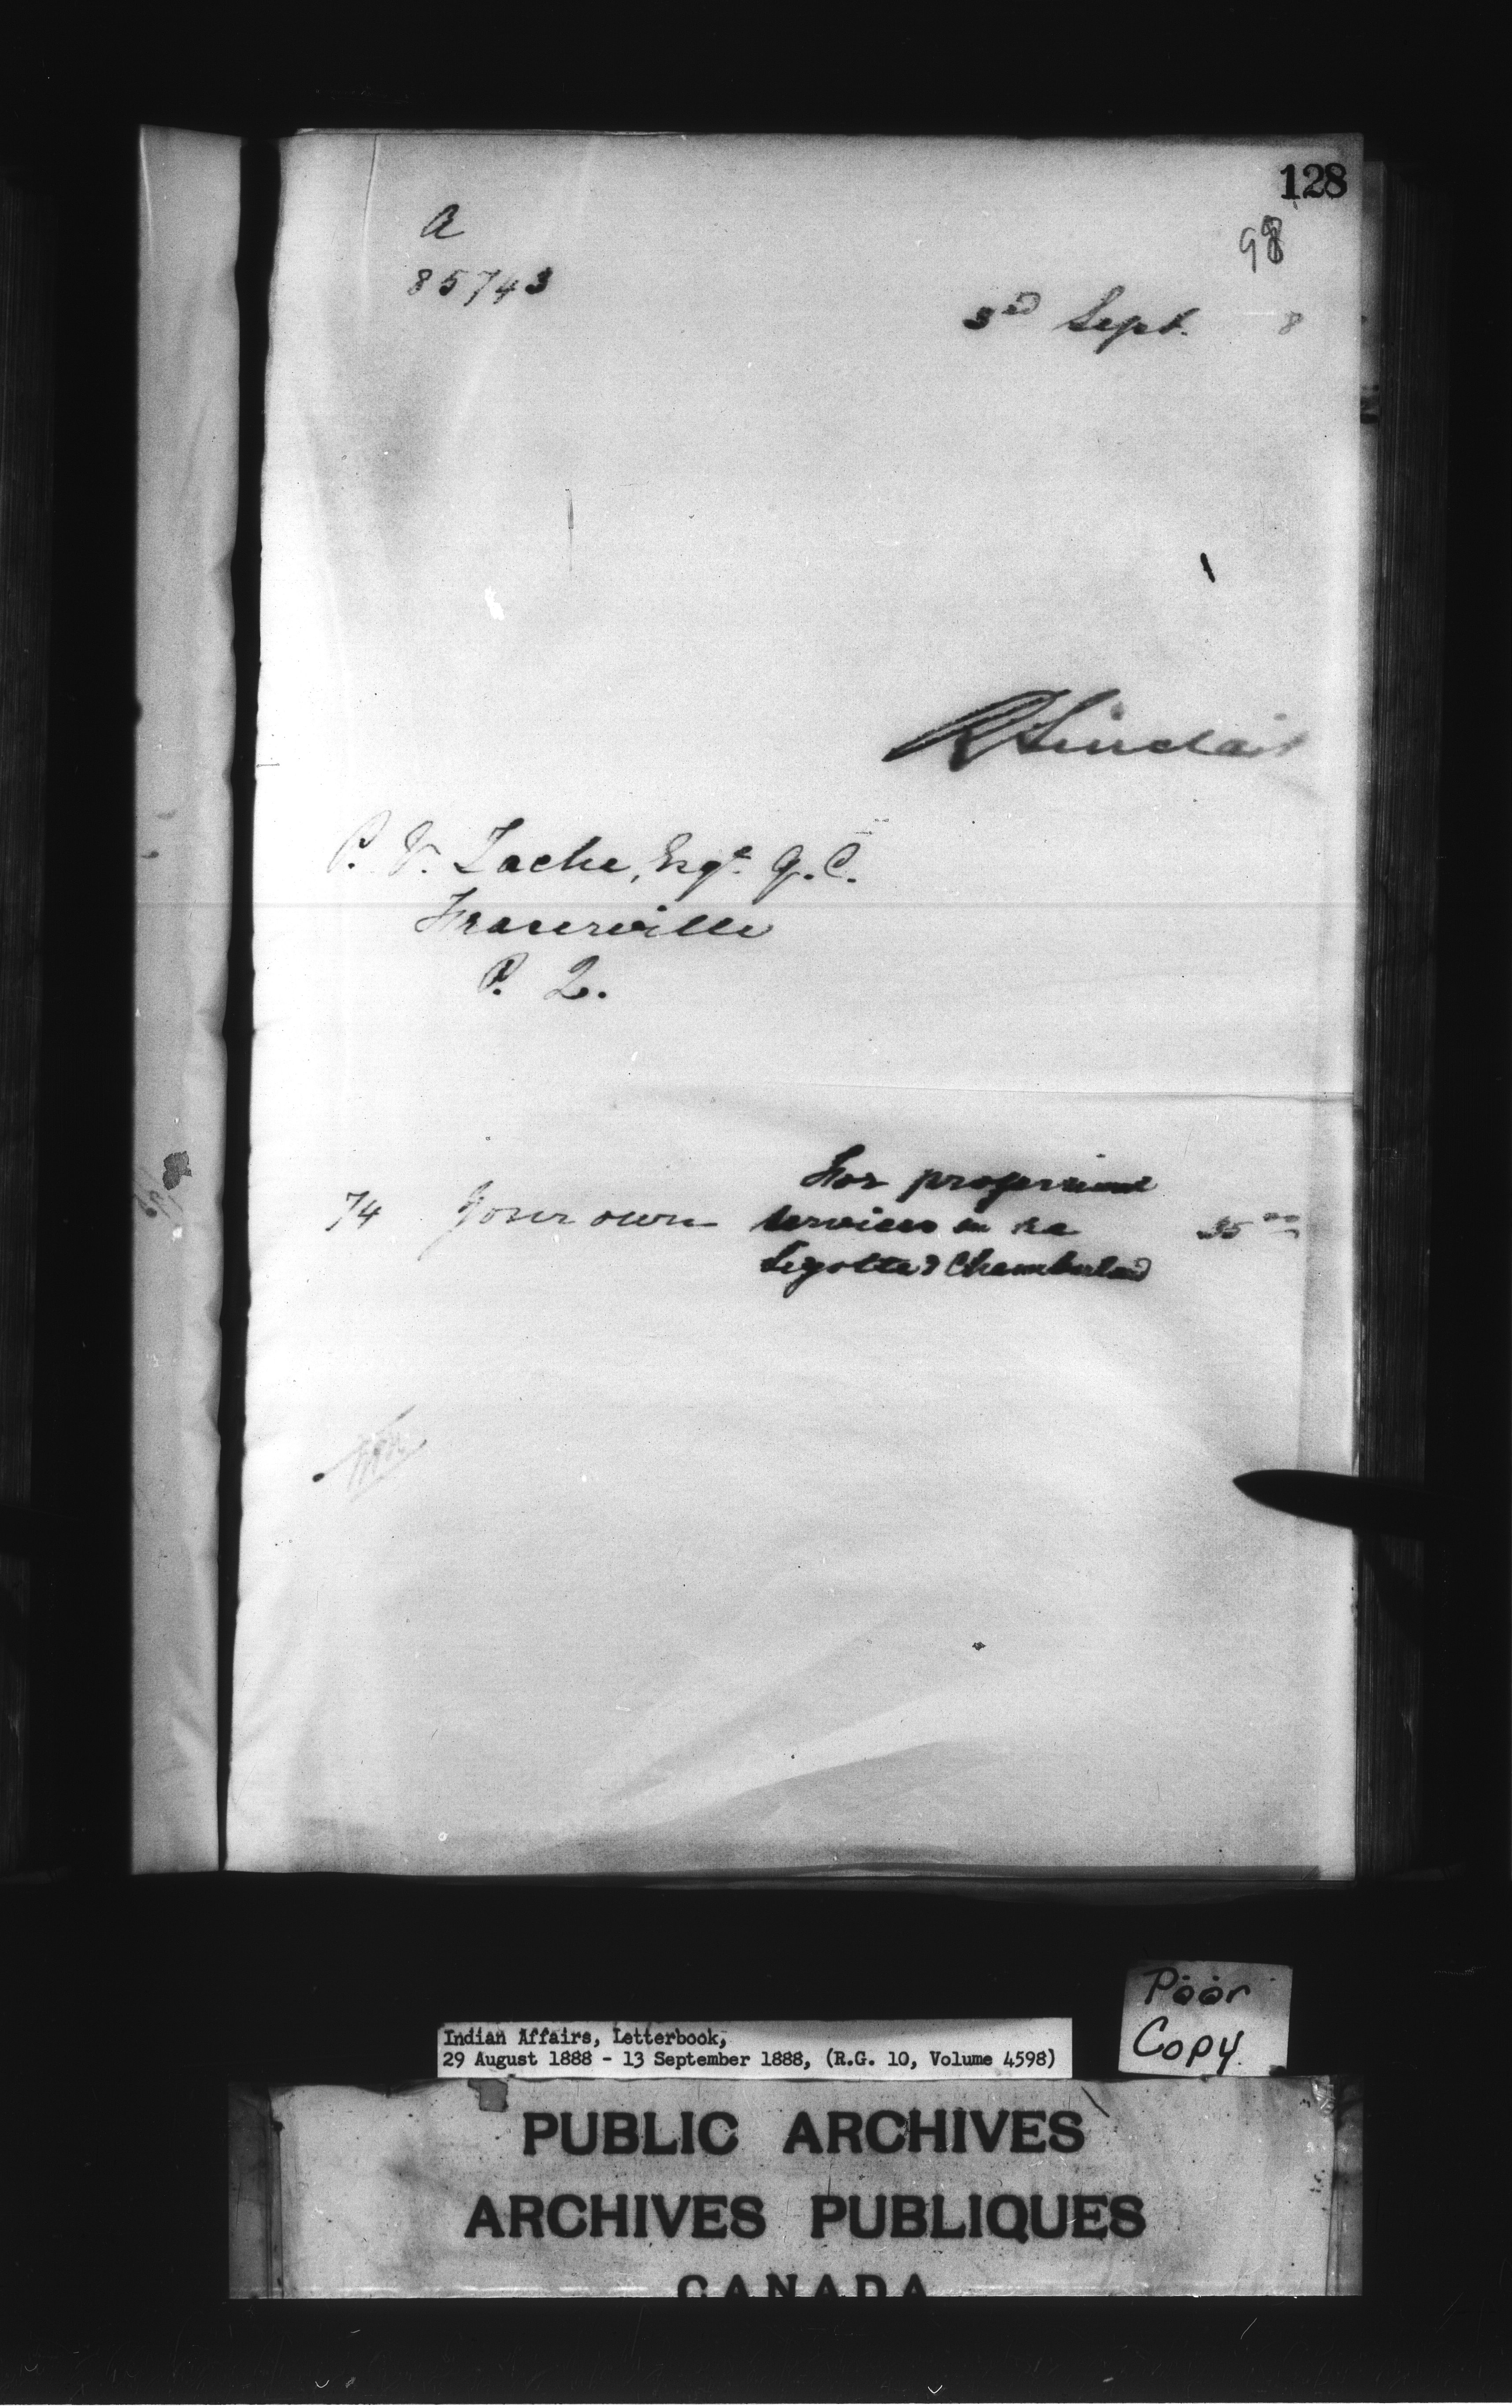 128
98
A
85743
3rd Sept. 8
R Sinclair
P. V. Tache, Esqe. Q.C.
Fraserville
P. Q.
For professional
74 Your own services in re 35 00
Legotte & Chamberland
Poor
Copy
Indian Affairs, Letterbook,
29 August 1888 - 13 September 1888, (R.G. 10, Volume 4598)
PUBLIC ARCHIVES
ARCHIVES PUBLIQUES
CANADA